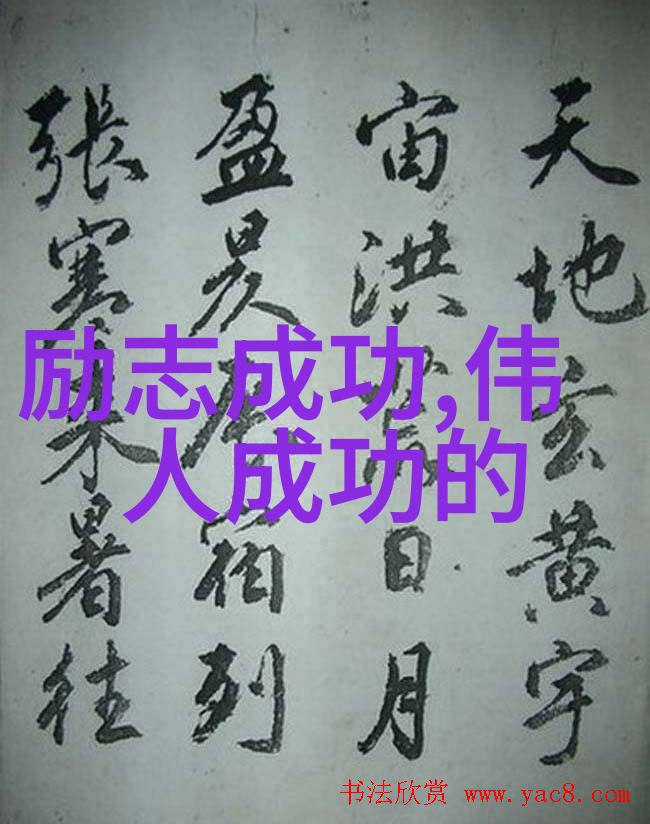 天地玄黄宇
宙洪日月
盈昃宿列
張寒来暑往
励志成功,伟
人成功的
书法欣赏 www.yac8.com